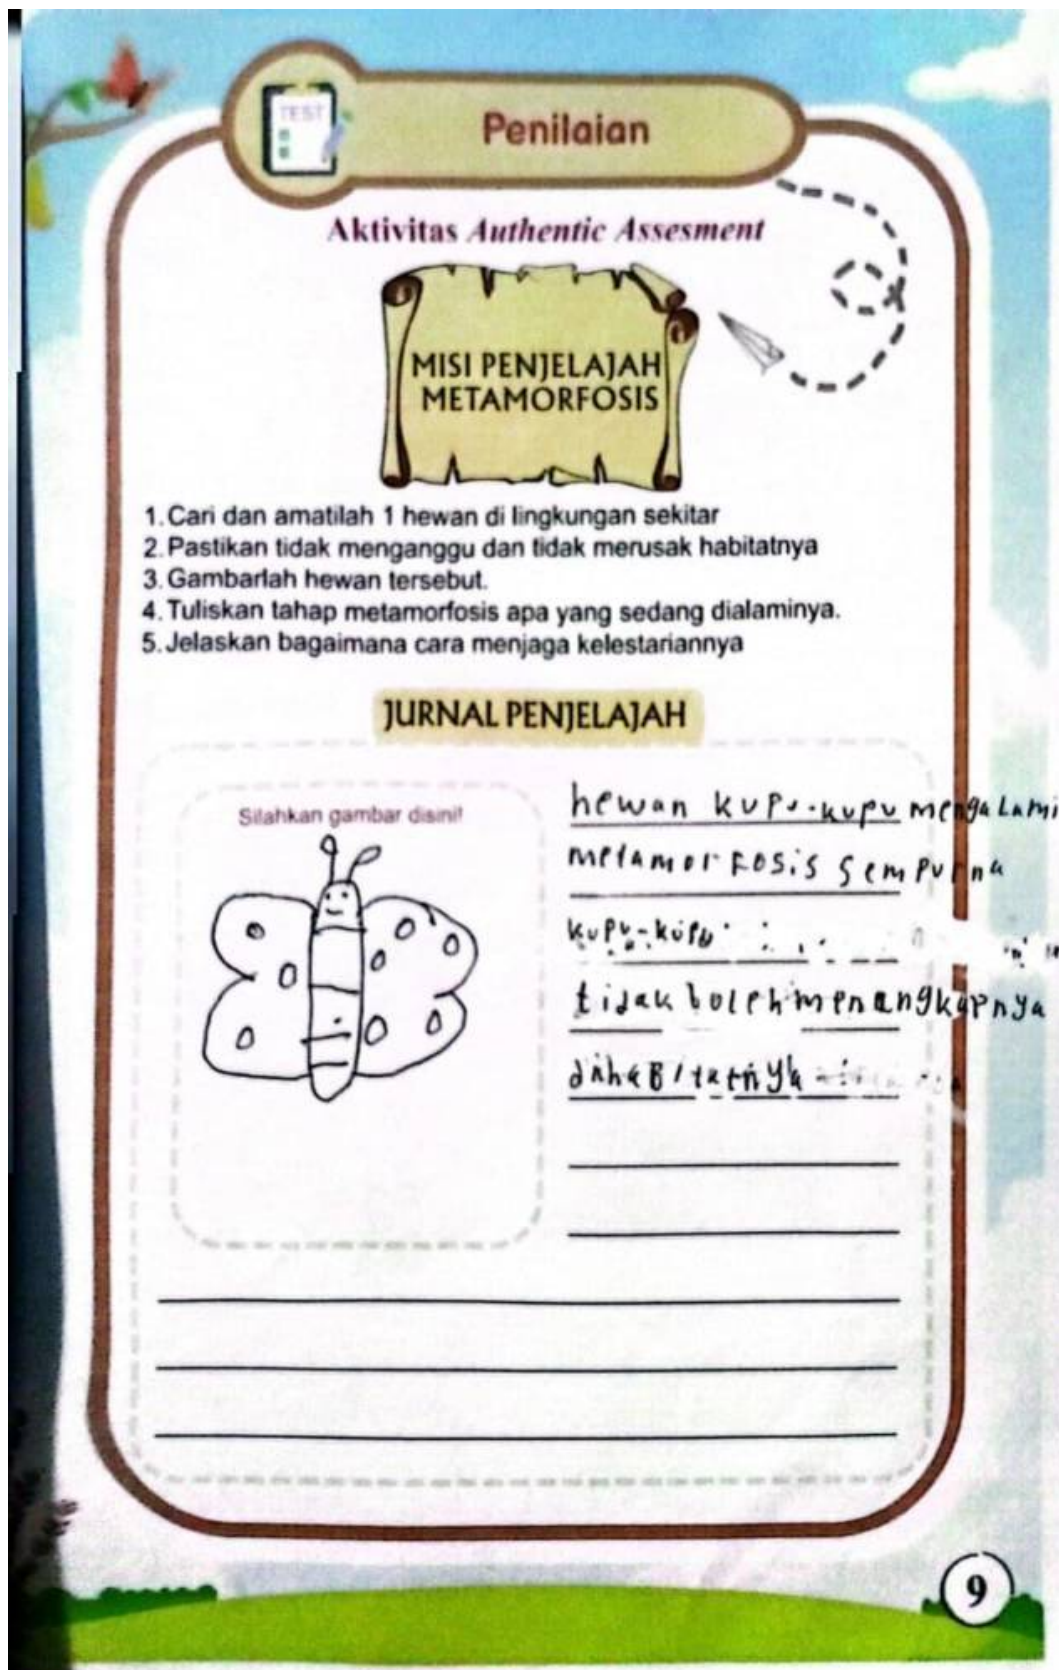 TEST
Penilaian
Aktivitas Authentic Assesment
MISI PENJELAJAH
METAMORFOSIS
1. Cari dan amatilah 1 hewan di lingkungan sekitar
2. Pastikan tidak menganggu dan tidak merusak habitatnya
3. Gambarlah hewan tersebut.
4. Tuliskan tahap metamorfosis apa yang sedang dialaminya.
5. Jelaskan bagaimana cara menjaga kelestariannya
JURNAL PENJELAJAH
Silahkan gambar disini!
hewan kupu-kupu mengalami
metamorfosis sempurna
kupu-kupu
tidak boleh menangkapnya
9